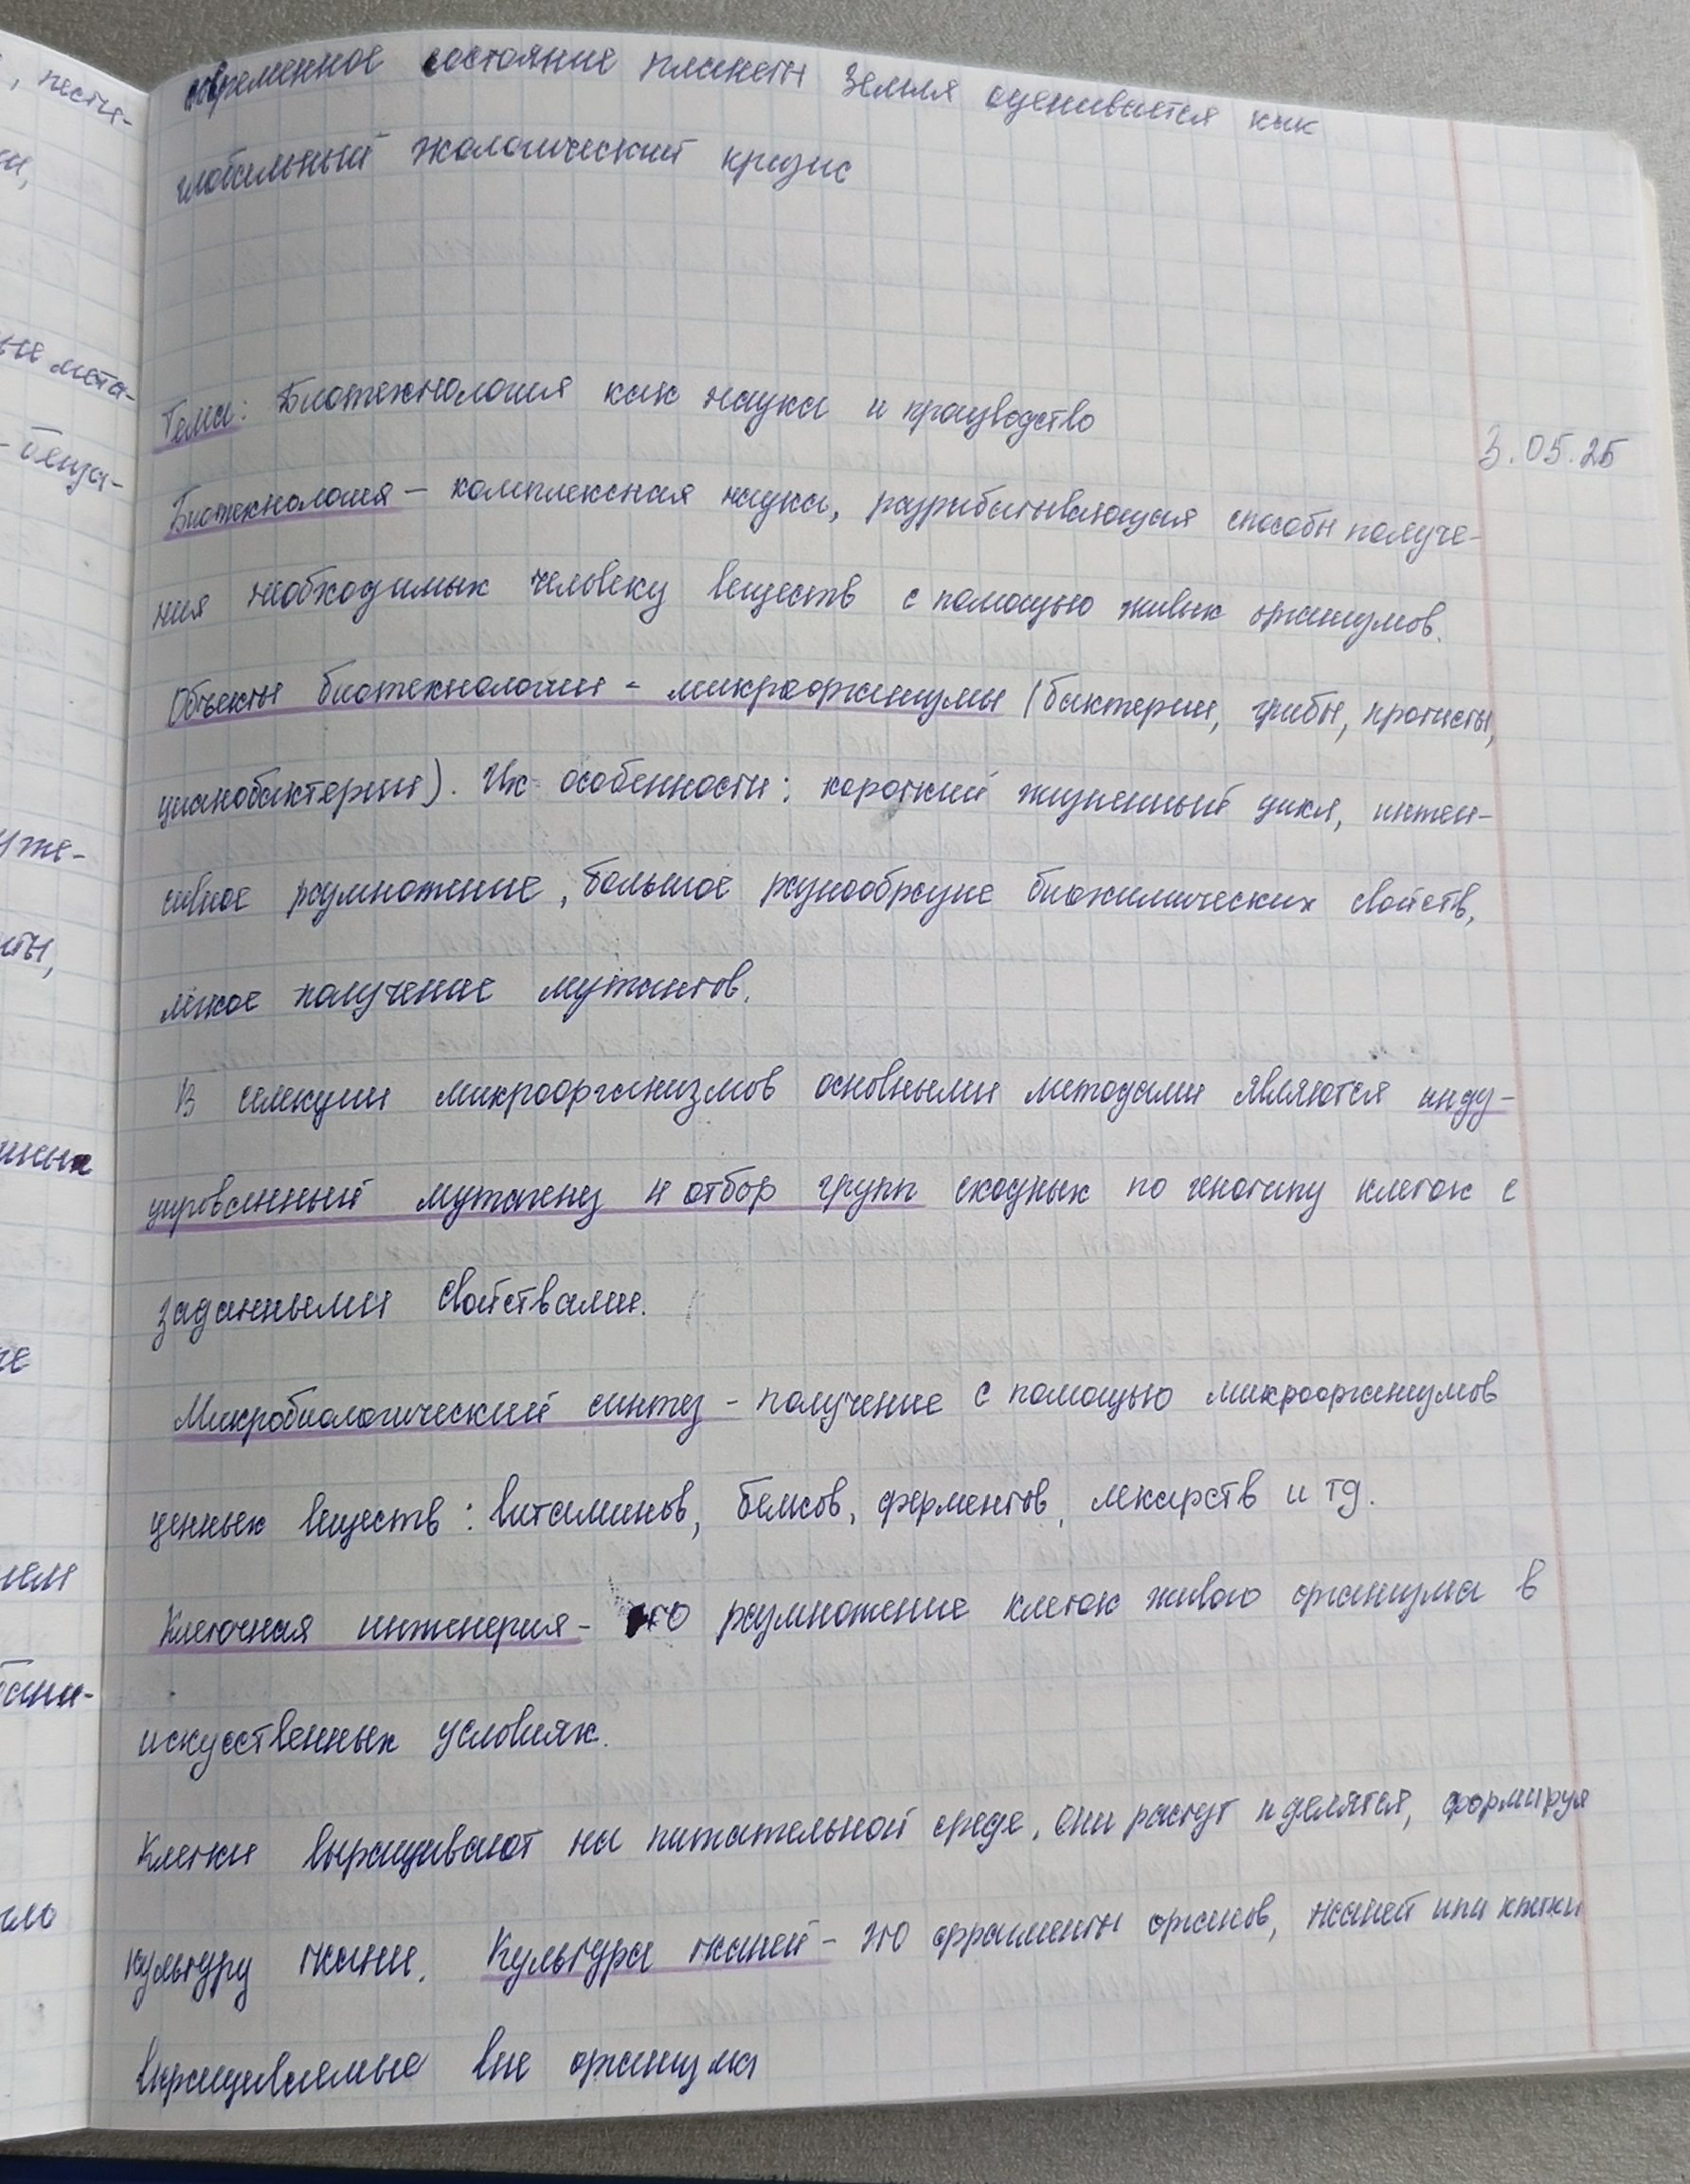 современное состояние планеты Земля оценивается как
глобальный экологический кризис
Тема: Биотехнология как наука и производство
3.05.25
Биотехнология – комплексная наука, разрабатывающая способы получе-
ния необходимых человеку веществ с помощью живых организмов.
Объекты биотехнологии - микроорганизмы (бактерии, грибы, протисты,
цианобактерии). Их особенности: короткий жизненный цикл, интен-
сивное размножение, большое разнообразие биохимических свойств,
лёгкое получение мутантов.
В селекции микроорганизмов основными методами являются инду-
цированный мутагенез и отбор групп сходных по генотипу клеток с
заданными свойствами.
Микробиологический синтез - получение с помощью микроорганизмов
ценных веществ: витаминов, белков, ферментов, лекарств и тд.
Клеточная инженерия - это размножение клеток живого организма в
искусственных условиях.
Клетки выращивают на питательной среде, они растут и делятся, формируя
культуру ткани. Культура тканей - это фрагменты органов, тканей или клетки
выращиваемые вне организма